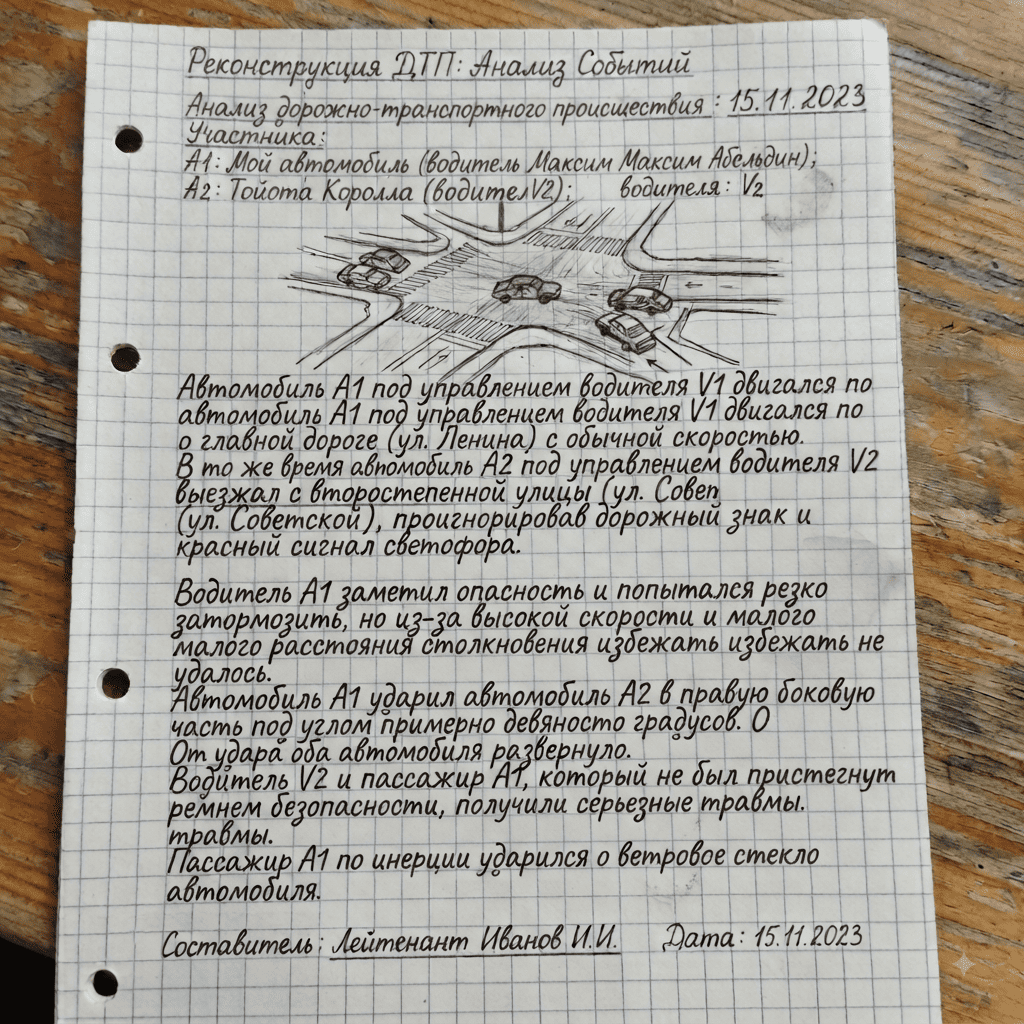 Реконструкция ДТП: Анализ Событий
Анализ дорожно-транспортного происшествия : 15.11.2023
Участника:
А1: Мой автомобиль (водитель Максим Максим Абельдин);
А2: Тойота Королла (водителV2); водителя: V2
Автомобиль А1 под управлением водителя V1 двигался по
автомобиль А1 под управлением водителя V1 двигался по
о главной дороге (ул. Ленина) с обычной скоростью.
В то же время автомобиль А2 под управлением водителя V2
выезжал с второстепенной улицы (ул. Совеп
(ул. Советской), проигнорировав дорожный знак и
красный сигнал светофора.
Водитель А1 заметил опасность и попытался резко
затормозить, но из-за высокой скорости и малого
малого расстояния столкновения избежать избежать не
удалось.
Автомобиль А1 ударил автомобиль А2 в правую боковую
часть под углом примерно девяносто градусов. О
От удара оба автомобиля развернуло.
Водитель V2 и пассажир А1, который не был пристегнут
ремнем безопасности, получили серьезные травмы.
травмы.
Пассажир А1 по инерции ударился о ветровое стекло
автомобиля.
Составитель: Лейтенант Иванов И.И. Дата: 15.11.2023